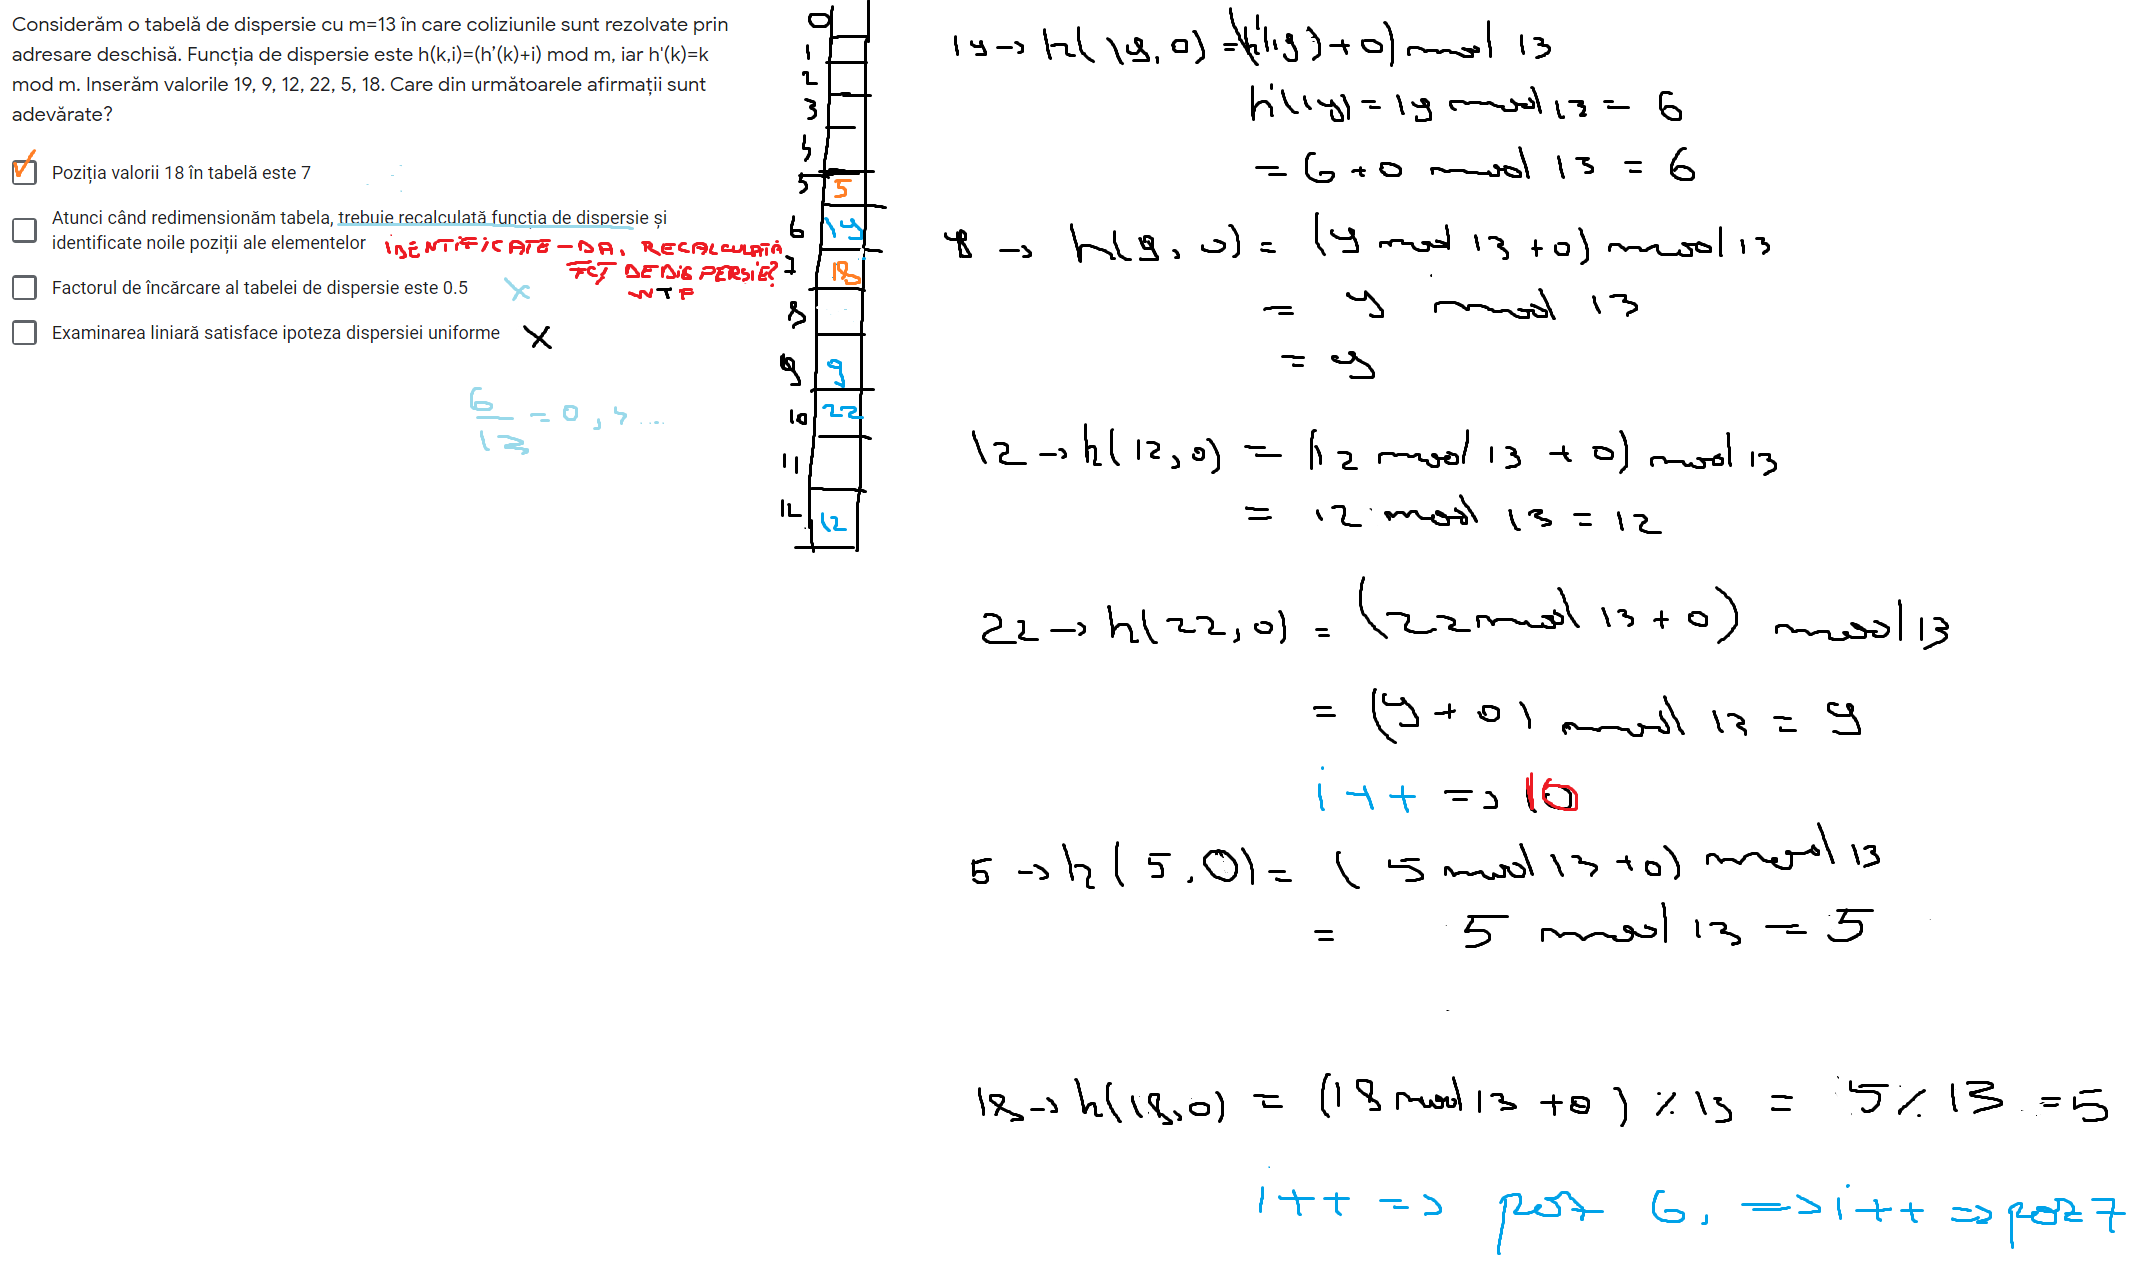 Considerăm o tabelă de dispersie cu m=13 în care coliziunile sunt rezolvate prin
adresare deschisă. Funcția de dispersie este h(k,i)=(h’(k)+i) mod m, iar h'(k)=k
mod m. Inserăm valorile 19, 9, 12, 22, 5, 18. Care din următoarele afirmații sunt
adevărate?
Poziția valorii 18 în tabelă este 7
Atunci când redimensionăm tabela, trebuie recalculată funcția de dispersie și
identificate noile poziții ale elementelor
IDENTIFICATE - DA. RECALCULATĂ
FCT DE DISPERSIE?
WTF
Factorul de încărcare al tabelei de dispersie este 0.5 x
Examinarea liniară satisface ipoteza dispersiei uniforme x
6
13
= 0,4...
0
1
2
3
4
5 5
6 19
7 18
8
9 9
10 22
11
12 12
19 -> h(19,0) = (h'(19)+0) mod 13
h'(19) = 19 mod 13 = 6
= 6+0 mod 13 = 6
9 -> h(9,0) = (9 mod 13 + 0) mod 13
= 9 mod 13
= 9
12 -> h(12,0) = (12 mod 13 + 0) mod 13
= 12 mod 13 = 12
22 -> h(22,0) = (22 mod 13 + 0) mod 13
= (9+0) mod 13 = 9
i++ => 10
5 -> h(5,0) = (5 mod 13 + 0) mod 13
= 5 mod 13 = 5
18 -> h(18,0) = (18 mod 13 + 0) % 13 = 5 % 13 = 5
i++ => poz 6, => i++ => poz 7